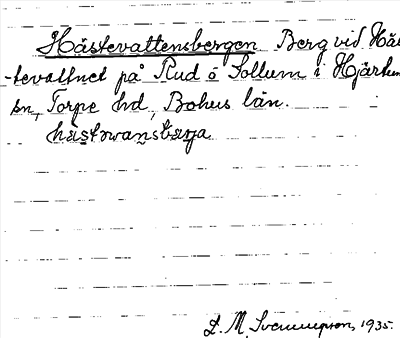 Hästevattensbergen Berg vid Häs
-tevattnet på Rud å Sollum i Hjärtum
sn, Torpe hd, Bohus län.
hästowansbærja
L. M. Svennungsson, 1935.